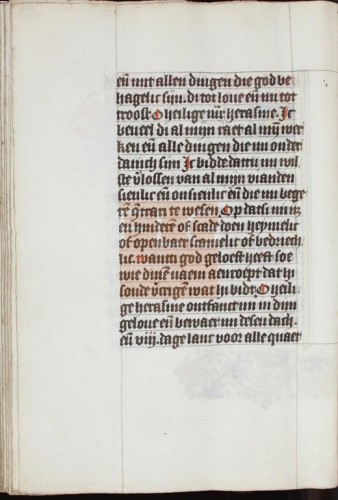 eñ mit allen dingen die god be
hagelic sijn. di tot loue eñ mi tot
troost O heilige m̃r herasme. Ic
beueel di al mijn raet al mijn wer
ken eñ alle dingen die mi onder
danich sijn Ic bidde dattu mi wil
ste v̓lossen van al mijn vianden
sienlic eñ onsienlic eñ die mi bege
rē q̃aet te wesen Op datsi mi ng
en hindere of scade doen heymelic
of openbaer scamelic of vedriech
lic. wantti god geloeft heeft soe
wie dinē naem aenroept dat hi
soude v̓crigen wat hi bidt O heili
ge herasme ontfanct mi in dijn
geloue eñ bewaer mi desen dach.
eñ viij. dage lanc voor alle quaet